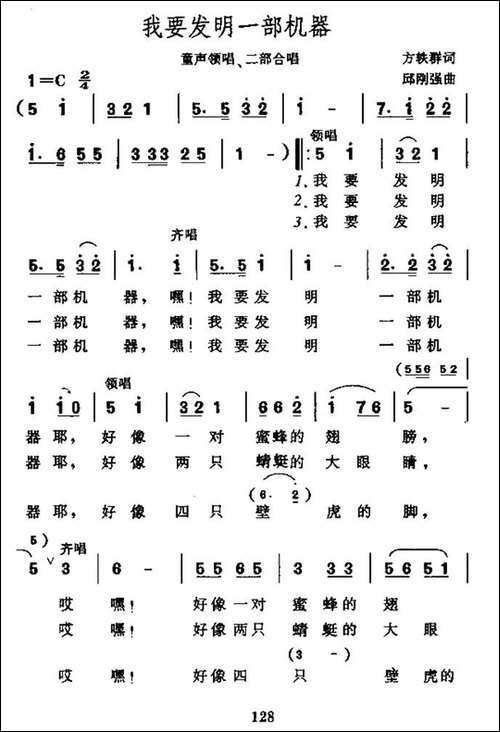 我要发明一部机器
童声领唱、二部合唱
方轶群词
1=C 2/4
邱刚强曲
(5 i | 321 | 5. 5 32 | 1 - | 7. i 22 |
1. 6 55 | 333 25 | 1 - ) ‖: 5 i | 321 |
领唱
1.我要 发明
2.我要 发明
3.我要 发明
齐唱
5. 5 32 | i. i | 5. 5 1 | i - | 2. 2 32 |
一部机 器，嘿！我要发 明 一部机
一部机 器，嘿！我要发 明 一部机
一部机 器，嘿！我要发 明 一部机
(556 52
领唱
i i0 | 5 i | 321 | 662 | 1 76 | 5 - |
器耶，好像 一对 蜜蜂的 翅 膀，
器耶，好像 两只 蜻蜓的 大眼 睛，
(6. 2)
器耶，好像 四只 壁 虎的 脚，
5)
齐唱
5 ∨ 3 | 6 - | 55 65 | 3 33 | 5 - | 56 51 |
哎 嘿！ 好像一对 蜜 蜂的 翅
哎 嘿！ 好像两只 蜻 蜓的 大 眼
(3 -)
哎 嘿！ 好像四 只 壁 虎的
128